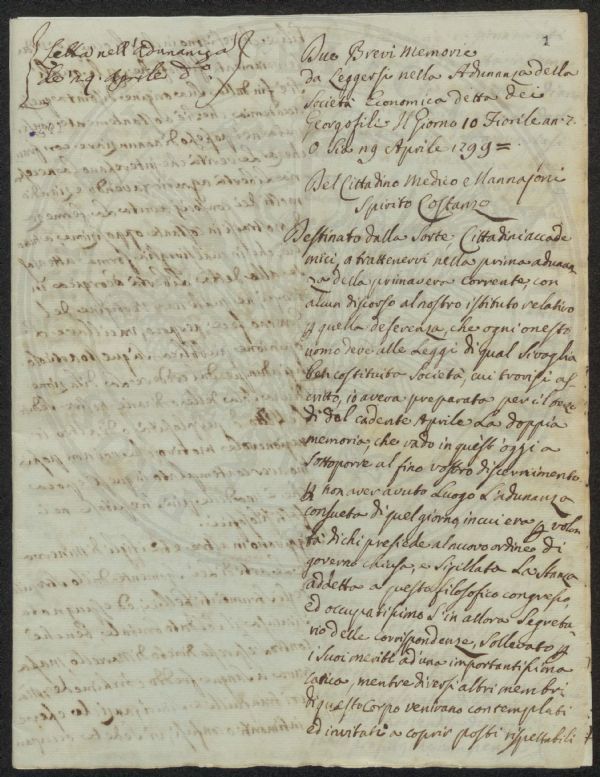 Letta nell'Adunanza
de 29. Aprile do.
1
Due Brevi Memorie
da Leggersi nella Adunanza della
Società Economica detta dei
Georgofili Il Giorno 10 Fiorile an. 7.
O Sia 29 Aprile 1799=
Del Cittadino Medico e Mannajoni
Spirito Costanzo
Destinato dalla Sorte Cittadini accade
mici, a trattenervi nella prima adunan
za della primavera corrente, con
alcun discorso al nostro istituto relativo
p quella deferenza, che ogni onesto
uomo deve alle Leggi di qual Sivoglia
ben costituita Società, cui trovisi as
critto, io aveva preparata per il
di del cadente Aprile La doppia
memoria, che vado in quest'oggi a
Sottoporre al fino vostro discernimento
p non aver avuto Luogo L'adunanza
consueta di quel giorno, in cui era p volon
tà di chi presiede al nuovo ordine di
governo chiusa, e Sigillata La Stanza
addetta a questo filosofico congresso,
ed occupatissimo S'in allora Segreta
rio delle Corrispondenze, Sollevato p
i Suoi meriti ad una importantissima
carica, mentre diversi altri membri
di questo Corpo venivano contemplati
ed invitati a coprir posti rispettabili